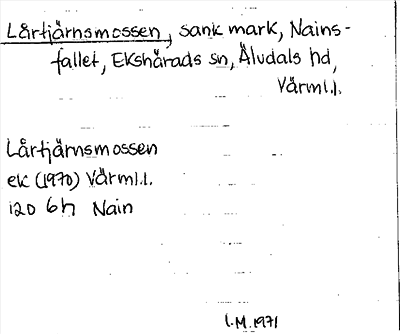 Lårtjärnsmossen, sank mark, Nains-
fallet, Ekshärads sn, Älvdals hd,
Värml.l.
Lårtjärnsmossen
ek (1970) Värml.l.
12D 6h Nain
I.M. 1971